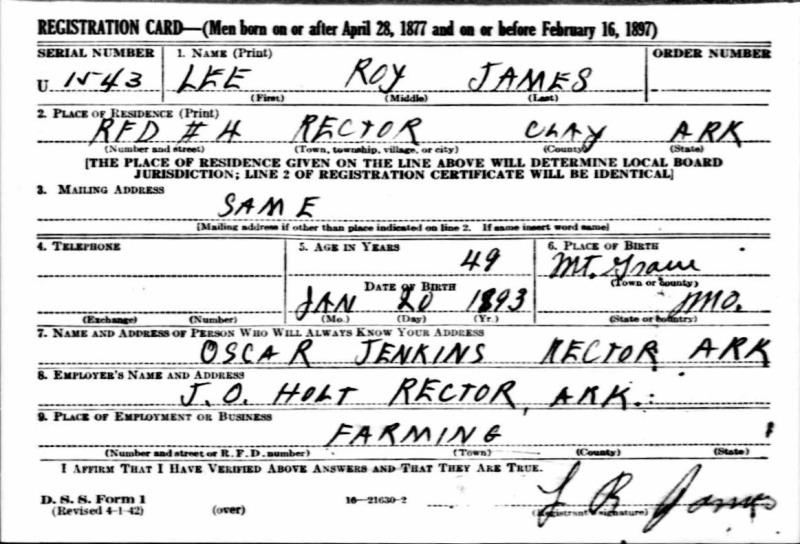 REGISTRATION CARD—(Men born on or after April 28, 1877 and on or before February 16, 1897)
SERIAL NUMBER 1. NAME (Print) ORDER NUMBER
U 1543 LEE ROY JAMES
(First) (Middle) (Last)
2. PLACE OF RESIDENCE (Print)
RFD # 4 RECTOR CLAY ARK
(Number and street) (Town, township, village, or city) (County) (State)
[THE PLACE OF RESIDENCE GIVEN ON THE LINE ABOVE WILL DETERMINE LOCAL BOARD
JURISDICTION; LINE 2 OF REGISTRATION CERTIFICATE WILL BE IDENTICAL]
3. MAILING ADDRESS
SAME
[Mailing address if other than place indicated on line 2. If same insert word same]
4. TELEPHONE 5. AGE IN YEARS 6. PLACE OF BIRTH
49 Mt. Grove
DATE OF BIRTH (Town or county)
JAN 20 1893 MO.
(Exchange) (Number) (Mo.) (Day) (Yr.) (State or country)
7. NAME AND ADDRESS OF PERSON WHO WILL ALWAYS KNOW YOUR ADDRESS
OSCAR JENKINS RECTOR ARK
8. EMPLOYER'S NAME AND ADDRESS
J. O. HOLT RECTOR, ARK.:
9. PLACE OF EMPLOYMENT OR BUSINESS
FARMING
(Number and street or R. F. D. number) (Town) (County) (State)
I AFFIRM THAT I HAVE VERIFIED ABOVE ANSWERS AND THAT THEY ARE TRUE.
D. S. S. Form 1 16—21630-2 L R James
(Revised 4-1-42) (over) (Registrant's signature)